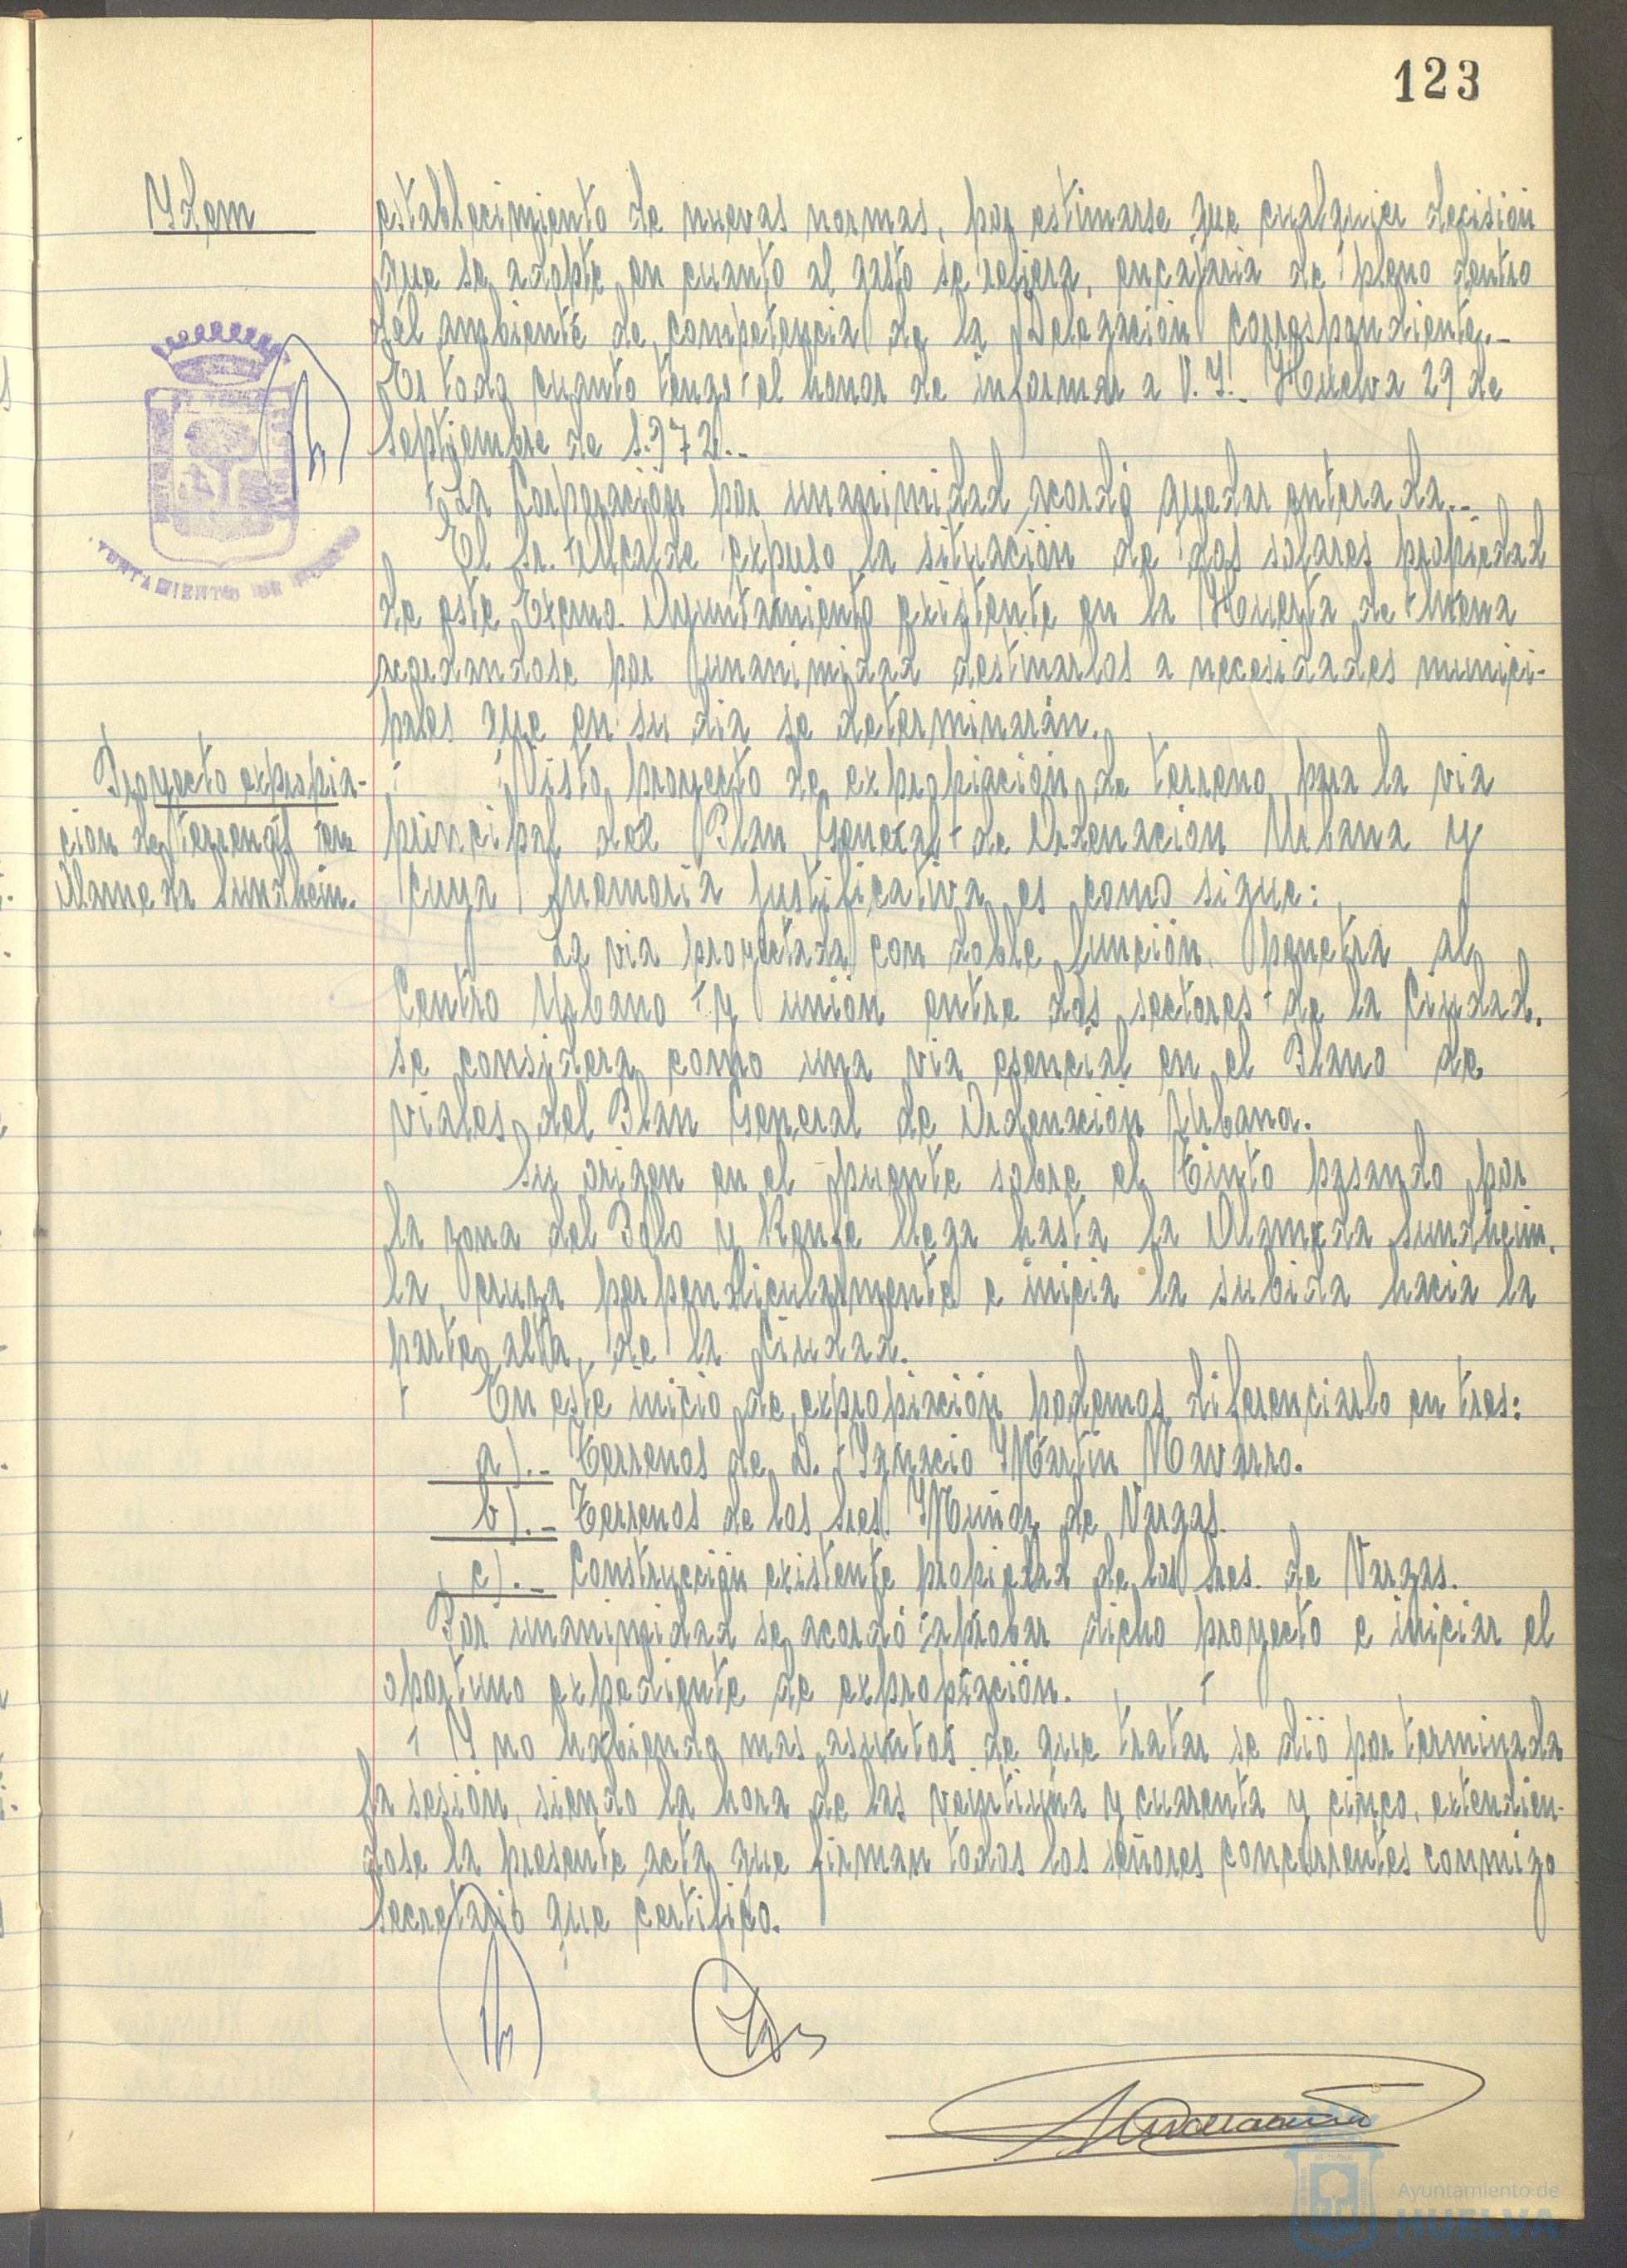 123
Ydem
establecimiento de nuevas normas, por estimarse que cualquier decision
que se adopte en cuanto al gasto se refiera, encajaria de pleno dentro
del ambiente de competencia de la Delegación correspondiente.-
Es todo cuanto tengo el honor de informar a V.Y.- Huelva 29 de
septiembre de 1.972.-
La Corporación por unanimidad acordó quedar enterada.-
El Sr. Alcalde expuso la situación de dos solares propiedad
de este Excmo. Ayuntamiento existente en la Huerta de Mena
acordandose por unanimidad destinarlos a necesidades munici-
pales que en su dia se determinarán.
Proyecto expropia-
cion de terrenos en
Alameda Sundheim.
Visto proyecto de expropiación de terreno para la via
principal del Plan General de Ordenacion Urbana y
cuya memoria justificativa es como sigue:
La via proyectada con doble función, penetra al
Centro Urbano y unión entre dos sectores de la Ciudad,
se considera como una via esencial en el Plano de
viales del Plan General de Ordenacion Urbana.
Su origen en el puente sobre el Tinto pasando por
la zona del Polo y Renfe llega hasta la Alameda Sundheim,
la cruza perpendicularmente e inicia la subida hacia la
parte alta, de la Ciudad.
En este inicio de expropiación podemos diferenciarlo en tres:
a).- Terrenos de D. Ygnacio Martin Navarro.
b).- Terrenos de los Sres. Muñoz de Vargas.
c).- Construcción existente propiedad de los Sres. de Vargas.
Por unanimidad se acordó aprobar dicho proyecto e iniciar el
oportuno expediente de expropiación.
Y no habiendo mas asuntos de que tratar se dió por terminada
la sesión, siendo la hora de las veintiuna y cuarenta y cinco, extendien-
dose la presente acta que firman todos los señores concurrentes conmigo
Secretario que certifico.
AYUNTAMIENTO DE HUELVA
Ayuntamiento de
HUELVA